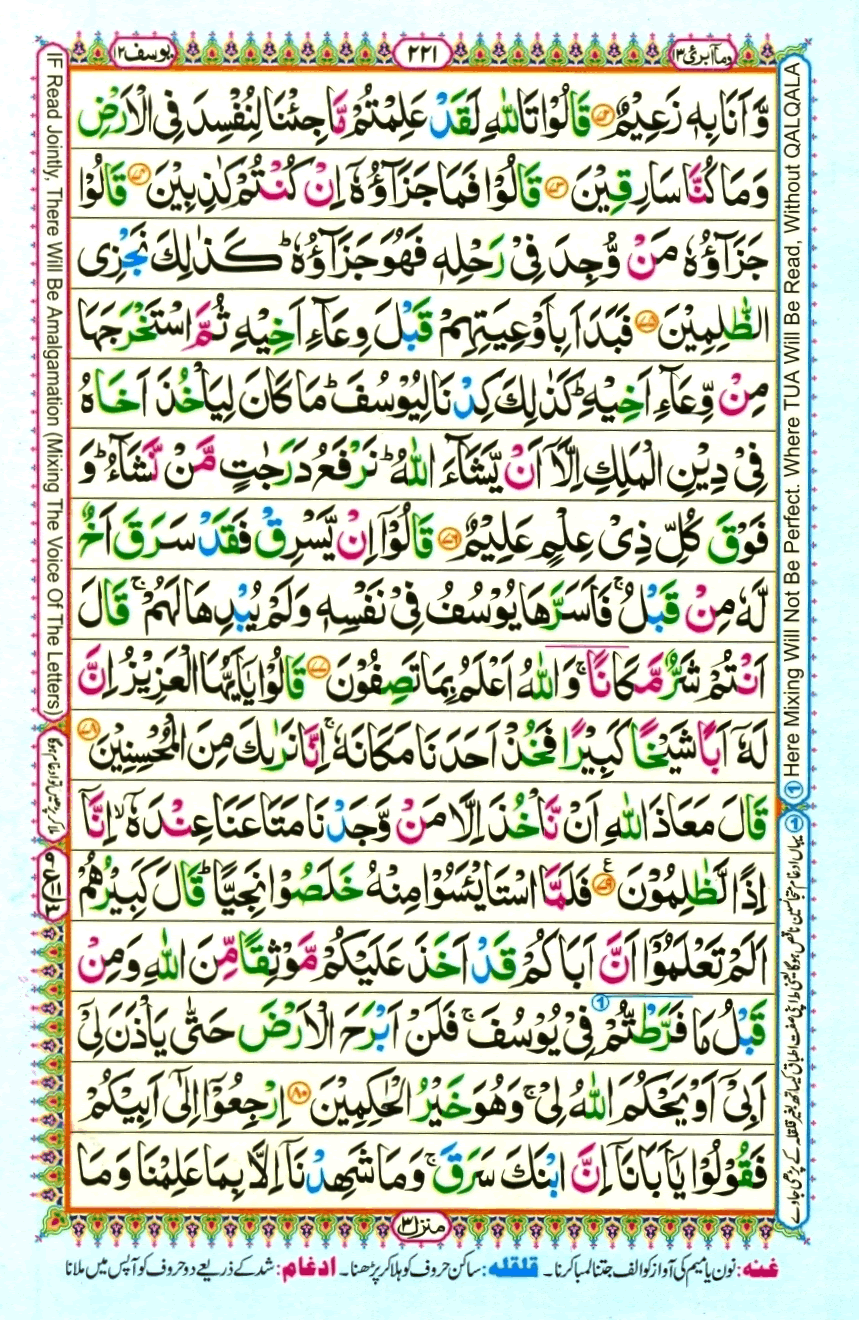 وما ابرئ ١٣
٢٢١
يوسف ١٢
وَّ اَنَا بِهٖ زَعِيْمٌ ﴿٧٢﴾ قَالُوْا تَاللّٰهِ لَقَدْ عَلِمْتُمْ مَّا جِئْنَا لِنُفْسِدَ فِى الْاَرْضِ
وَمَا كُنَّا سَارِقِيْنَ ﴿٧٣﴾ قَالُوْا فَمَا جَزَآؤُهٗۤ اِنْ كُنْتُمْ كٰذِبِيْنَ ﴿٧٤﴾ قَالُوْا
جَزَآؤُهٗ مَنْ وُّجِدَ فِىْ رَحْلِهٖ فَهُوَ جَزَآؤُهٗ ؕ كَذٰلِكَ نَجْزِى
الظّٰلِمِيْنَ ﴿٧٥﴾ فَبَدَاَ بِاَوْعِيَتِهِمْ قَبْلَ وِعَآءِ اَخِيْهِ ثُمَّ اسْتَخْرَجَهَا
مِنْ وِّعَآءِ اَخِيْهِ ؕ كَذٰلِكَ كِدْنَا لِيُوْسُفَ ؕ مَا كَانَ لِيَاْخُذَ اَخَاهُ
فِىْ دِيْنِ الْمَلِكِ اِلَّاۤ اَنْ يَّشَآءَ اللّٰهُ ؕ نَرْفَعُ دَرَجٰتٍ مَّنْ نَّشَآءُ ؕ وَ
فَوْقَ كُلِّ ذِىْ عِلْمٍ عَلِيْمٌ ﴿٧٦﴾ قَالُوْۤا اِنْ يَّسْرِقْ فَقَدْ سَرَقَ اَخٌ
لَّهٗ مِنْ قَبْلُ ۚ فَاَسَرَّهَا يُوْسُفُ فِىْ نَفْسِهٖ وَلَمْ يُبْدِهَا لَهُمْ ۚ قَالَ
اَنْتُمْ شَرٌّ مَّكَانًا ۚ وَ اللّٰهُ اَعْلَمُ بِمَا تَصِفُوْنَ ﴿٧٧﴾ قَالُوْا يٰۤاَيُّهَا الْعَزِيْزُ اِنَّ
لَهٗۤ اَبًا شَيْخًا كَبِيْرًا فَخُذْ اَحَدَنَا مَكَانَهٗ ۚ اِنَّا نَرٰىكَ مِنَ الْمُحْسِنِيْنَ ﴿٧٨﴾
قَالَ مَعَاذَ اللّٰهِ اَنْ نَّاْخُذَ اِلَّا مَنْ وَّجَدْنَا مَتَاعَنَا عِنْدَهٗۤ ۙ اِنَّاۤ
اِذًا لَّظٰلِمُوْنَ ﴿٧٩﴾ ع فَلَمَّا اسْتَايْـَٔسُوْا مِنْهُ خَلَصُوْا نَجِيًّا ؕ قَالَ كَبِيْرُهُمْ
اَلَمْ تَعْلَمُوْۤا اَنَّ اَبَاكُمْ قَدْ اَخَذَ عَلَيْكُمْ مَّوْثِقًا مِّنَ اللّٰهِ وَمِنْ
قَبْلُ مَا فَرَّطْتُّمْ ① فِىْ يُوْسُفَ ۚ فَلَنْ اَبْرَحَ الْاَرْضَ حَتّٰى يَاْذَنَ لِىْۤ
اَبِىْۤ اَوْ يَحْكُمَ اللّٰهُ لِىْ ۚ وَهُوَ خَيْرُ الْحٰكِمِيْنَ ﴿٨٠﴾ اِرْجِعُوْۤا اِلٰٓى اَبِيْكُمْ
فَقُوْلُوْا يٰۤاَبَانَاۤ اِنَّ ابْنَكَ سَرَقَ ۚ وَمَا شَهِدْنَاۤ اِلَّا بِمَا عَلِمْنَا وَمَا
منزل ٣
غنہ: نون یا میم کی آواز کو الف جتنا لمبا کرنا۔ قلقلہ: ساکن حروف کو ہلا کر پڑھنا۔ ادغام: شد کے ذریعے دو حروف کو آپس میں ملانا
① Here Mixing Will Not Be Perfect. Where TUA Will Be Read, Without QALQALA
IF Read Jointly, There Will Be Amalgamation (Mixing The Voice Of The Letters)
ملا کر پڑھیں تو ادغام ہوگا